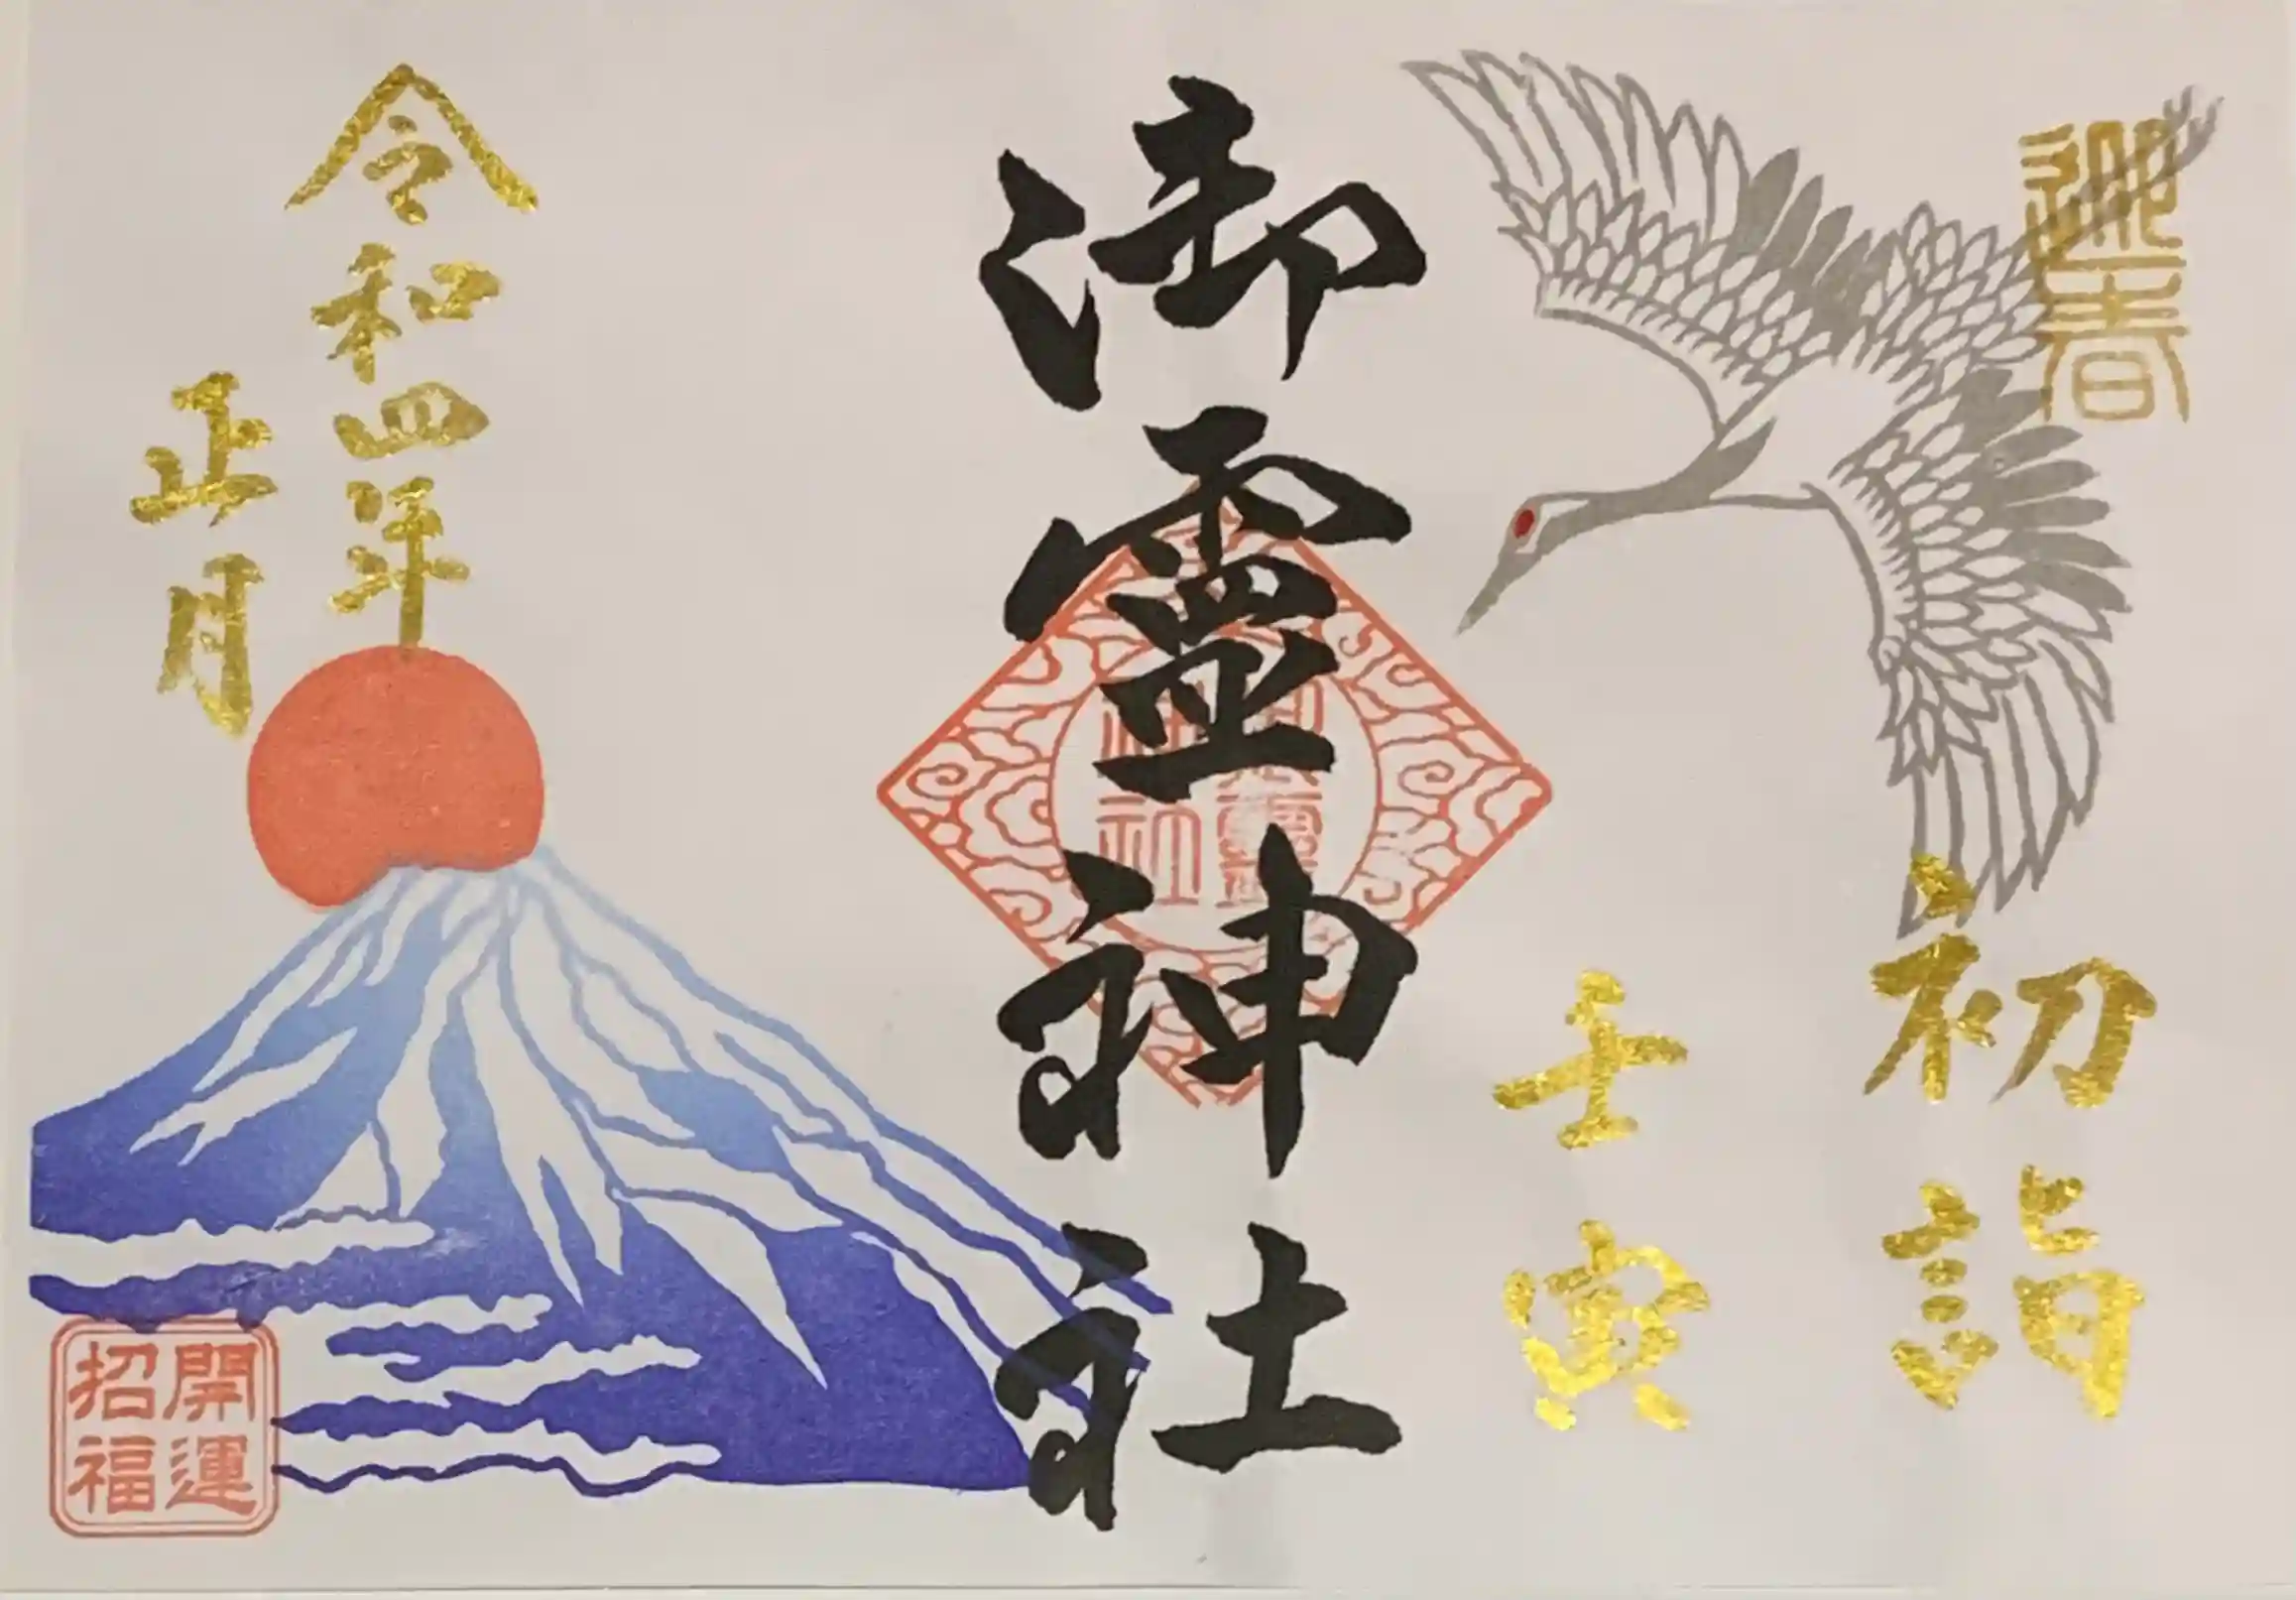 迎春
初詣
壬寅
御靈神社
御靈
神社
令和四年
正月
開運
招福